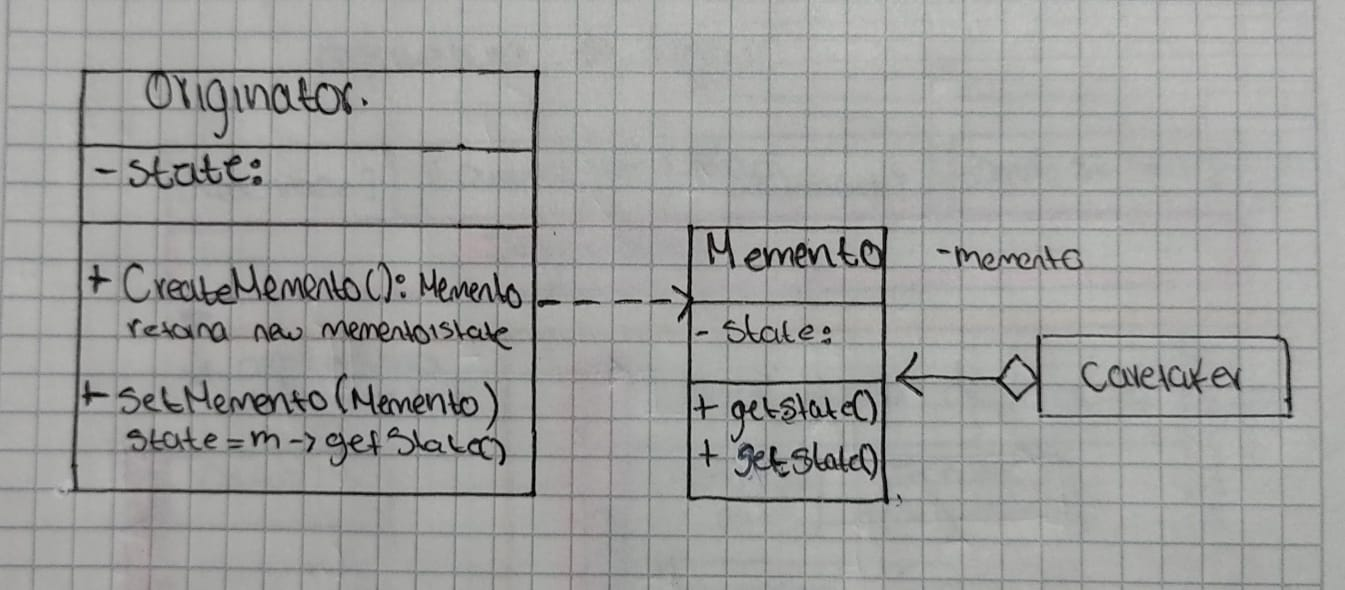 Originator.
- State:
+ CreateMemento(): Memento
new memento state
+ SetMemento(Memento)
State = m -> getState()
Memento
- State:
+ getState()
+ getState()
-memento
Caretaker